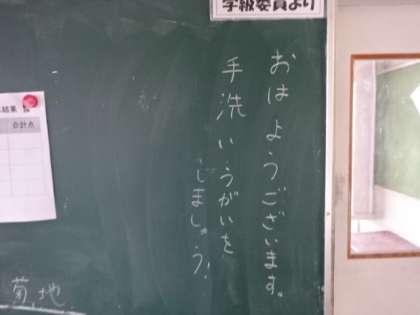 学級委員より
おはようございます。
手洗いうがいを
しましょう!
結果
合計点
菊地